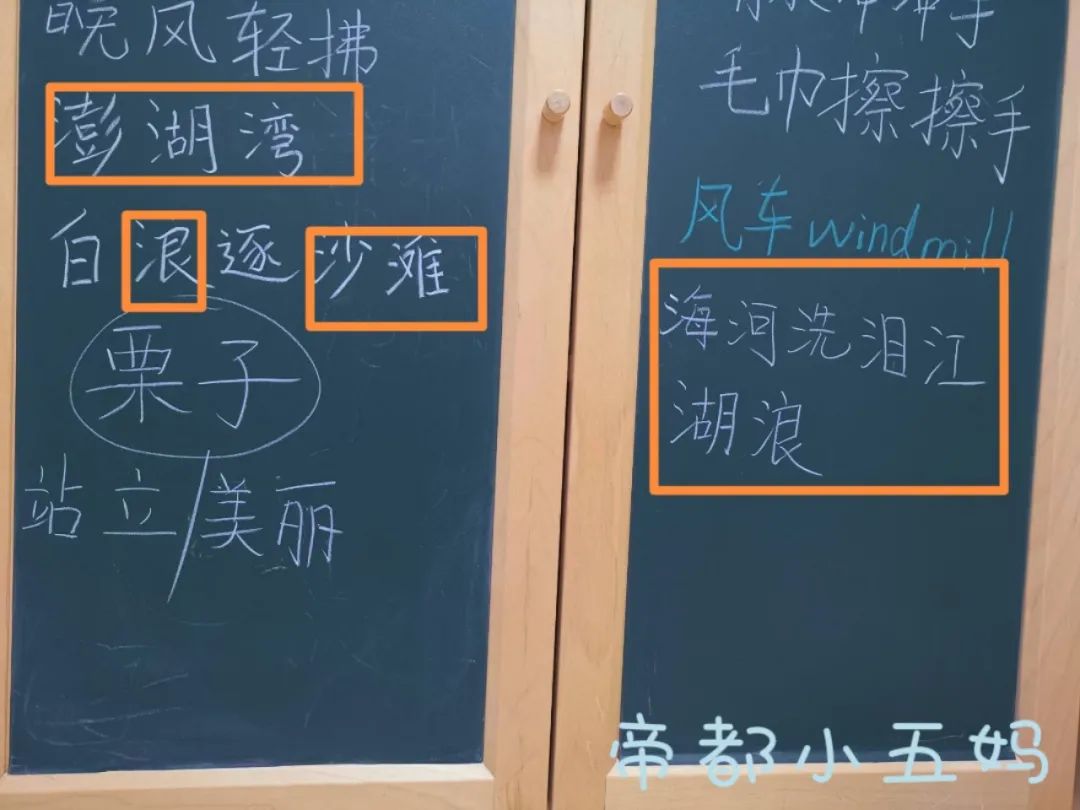 晚风轻拂
澎湖湾
白浪逐沙滩
栗子
站立/美丽
冲冲手
毛巾擦擦手
风车windmill
海河洗泪江
湖浪
帝都小五妈